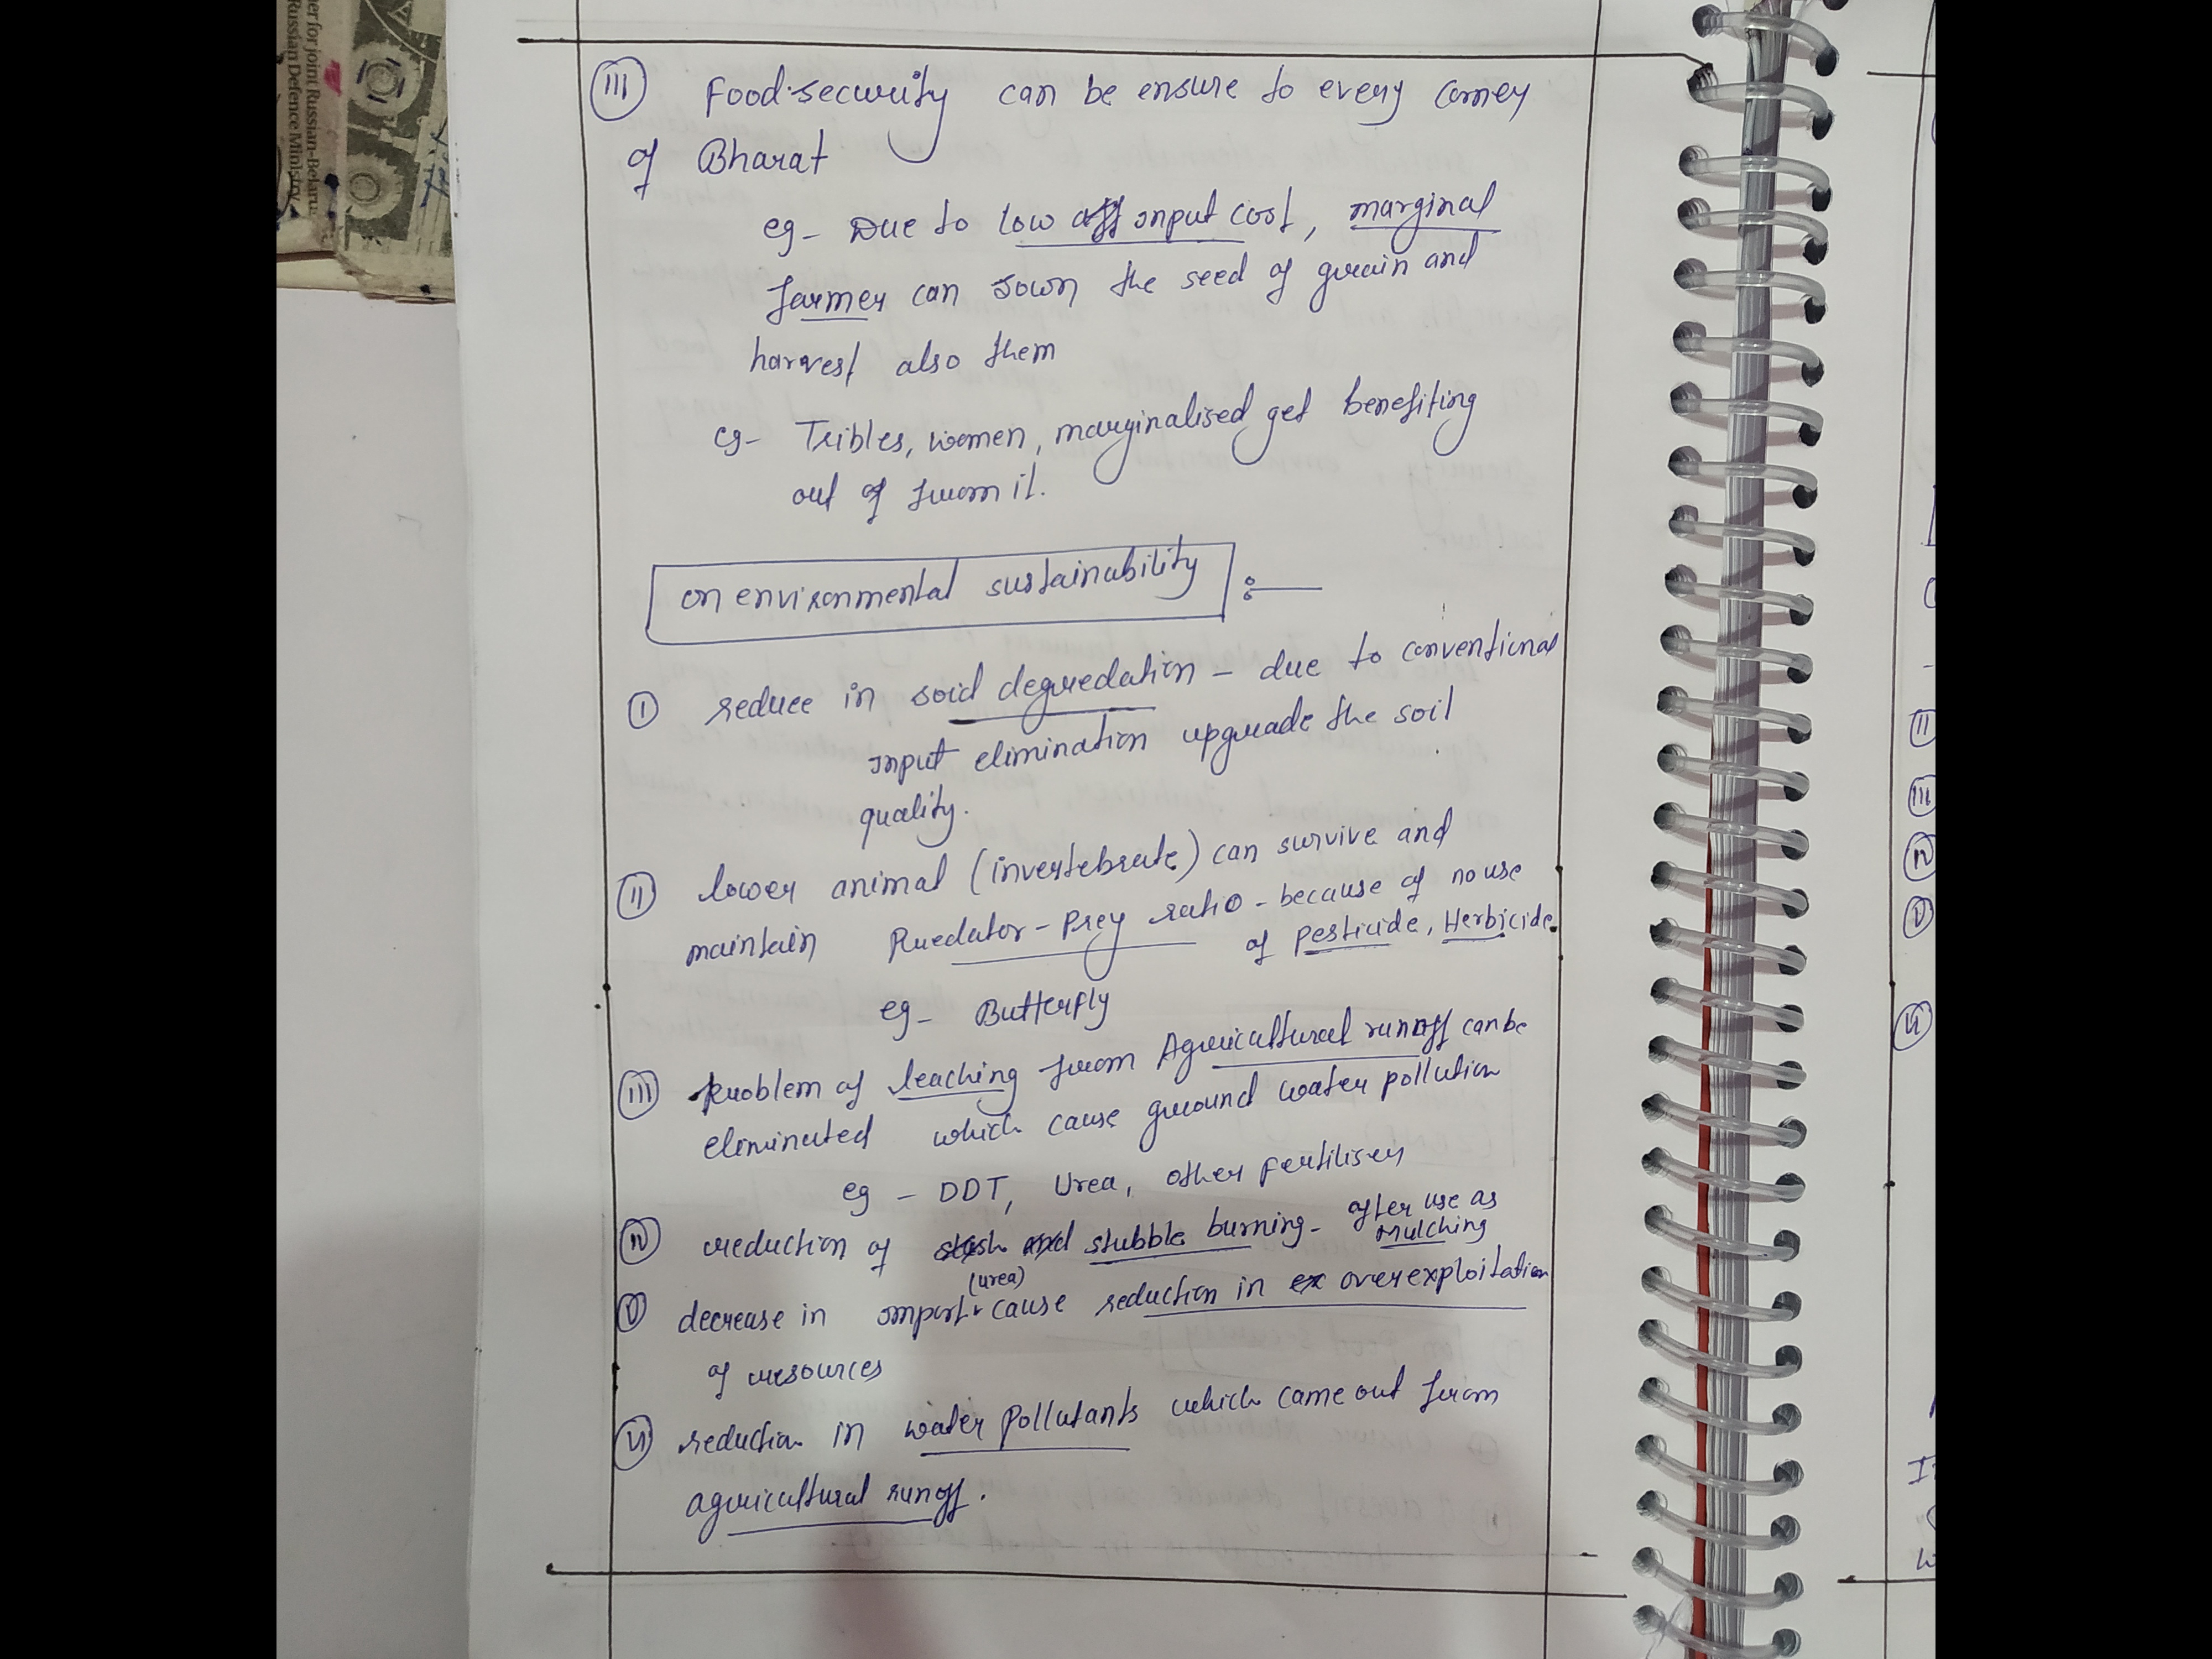 er for joint Russian-Belaru
Russian Defence Ministry
(III) Food security can be ensure to every corner
of Bharat
eg- Due to low input cost, marginal
farmer can sown the seed of grain and
harvest also them
eg- Tribles, women, marginalised get benefiting
out of from it.
on environmental sustainability :-
(I) reduce in soid degredation - due to conventional
input elimination upgrade the soil
quality.
(II) lower animal (invertebrate) can survive and
maintain Predator - Prey ratio - because of no use
of Pesticide, Herbicide.
eg- Butterfly
(III) Problem of leaching from Agricultural runoff can be
eliminated which cause ground water pollution
eg - DDT, Urea, other fertiliser
(IV) reduction of stubble burning - after use as
Mulching
(V) decrease in import (urea) cause reduction in overexploitation
of resources
(VI) reduction in water pollutants which came out from
agricultural runoff.
(II)
(III)
(IV)
(V)
(VI)